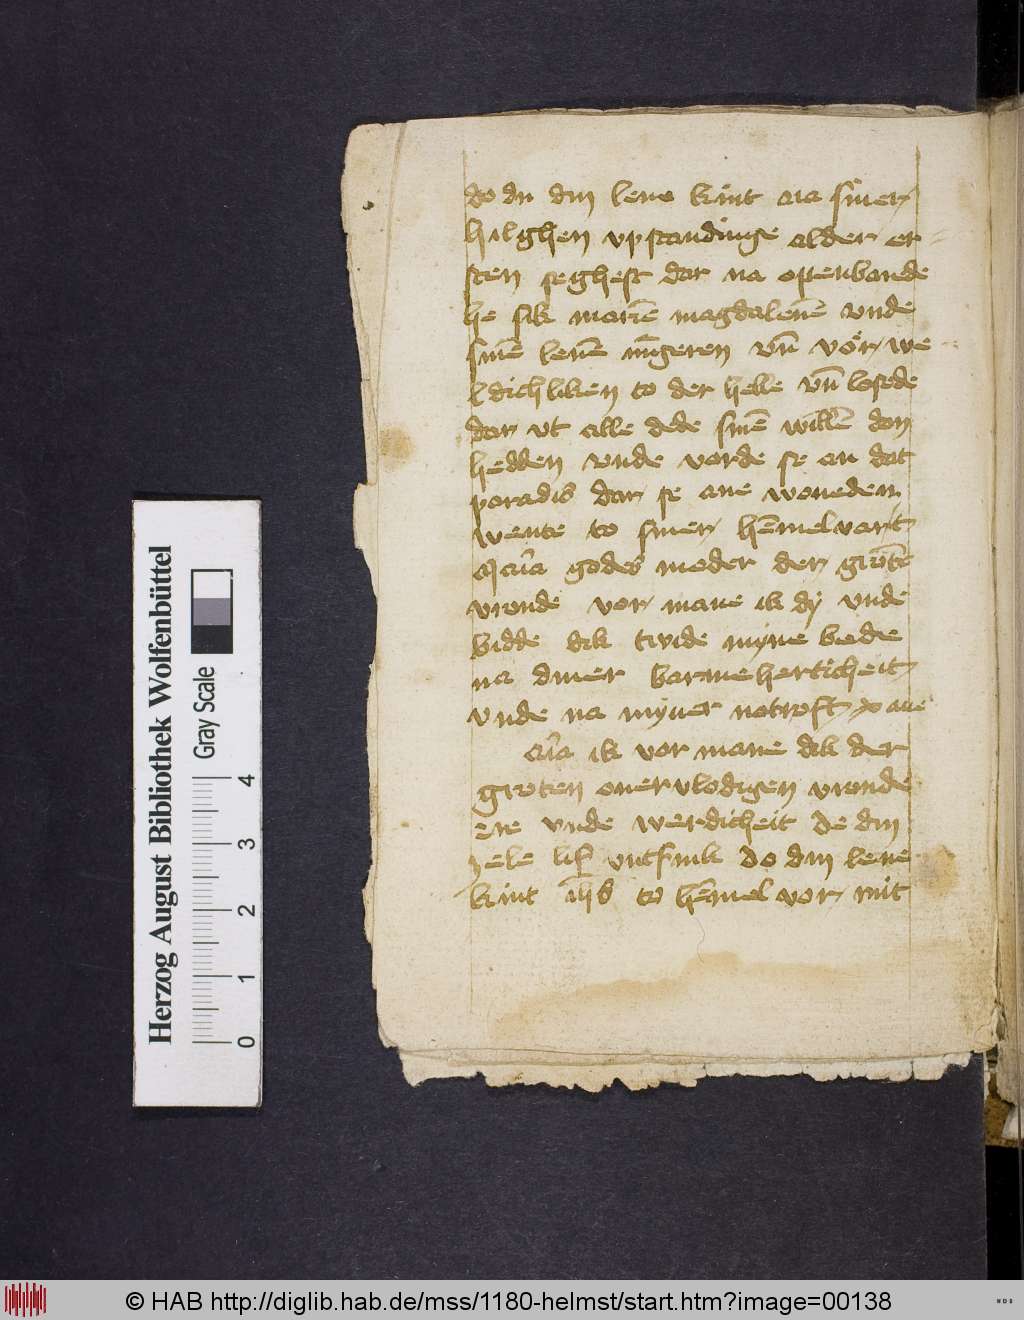 do du din leue kint na siner
hilghen vpstandinge alder er
sten seghest dar na openbarde
he sik marien magdalenen vnde
sinen leuen iungeren vnde vor we
ldichliken to der helle vnde losede
dar vt alle dede sinen willen don
hedden vnde vorde se an dat
paradis dar se ane woneden
wente to siner hemmel vart
Maria godes moder der groten
vronde vor mane ik dy vnde
bidde dik twide myne bede
na diner barmeherticheit
vnde na myner notroft do aue
aria ik vor mane dik der
groten ouervlodigen vronde
ere vnde werdicheit de din
zele lif vntfink do din leue
kint ihs to hemmel vor mit
Herzog August Bibliothek Wolfenbüttel
Gray Scale
0 1 2 3 4
© HAB http://diglib.hab.de/mss/1180-helmst/start.htm?image=00138